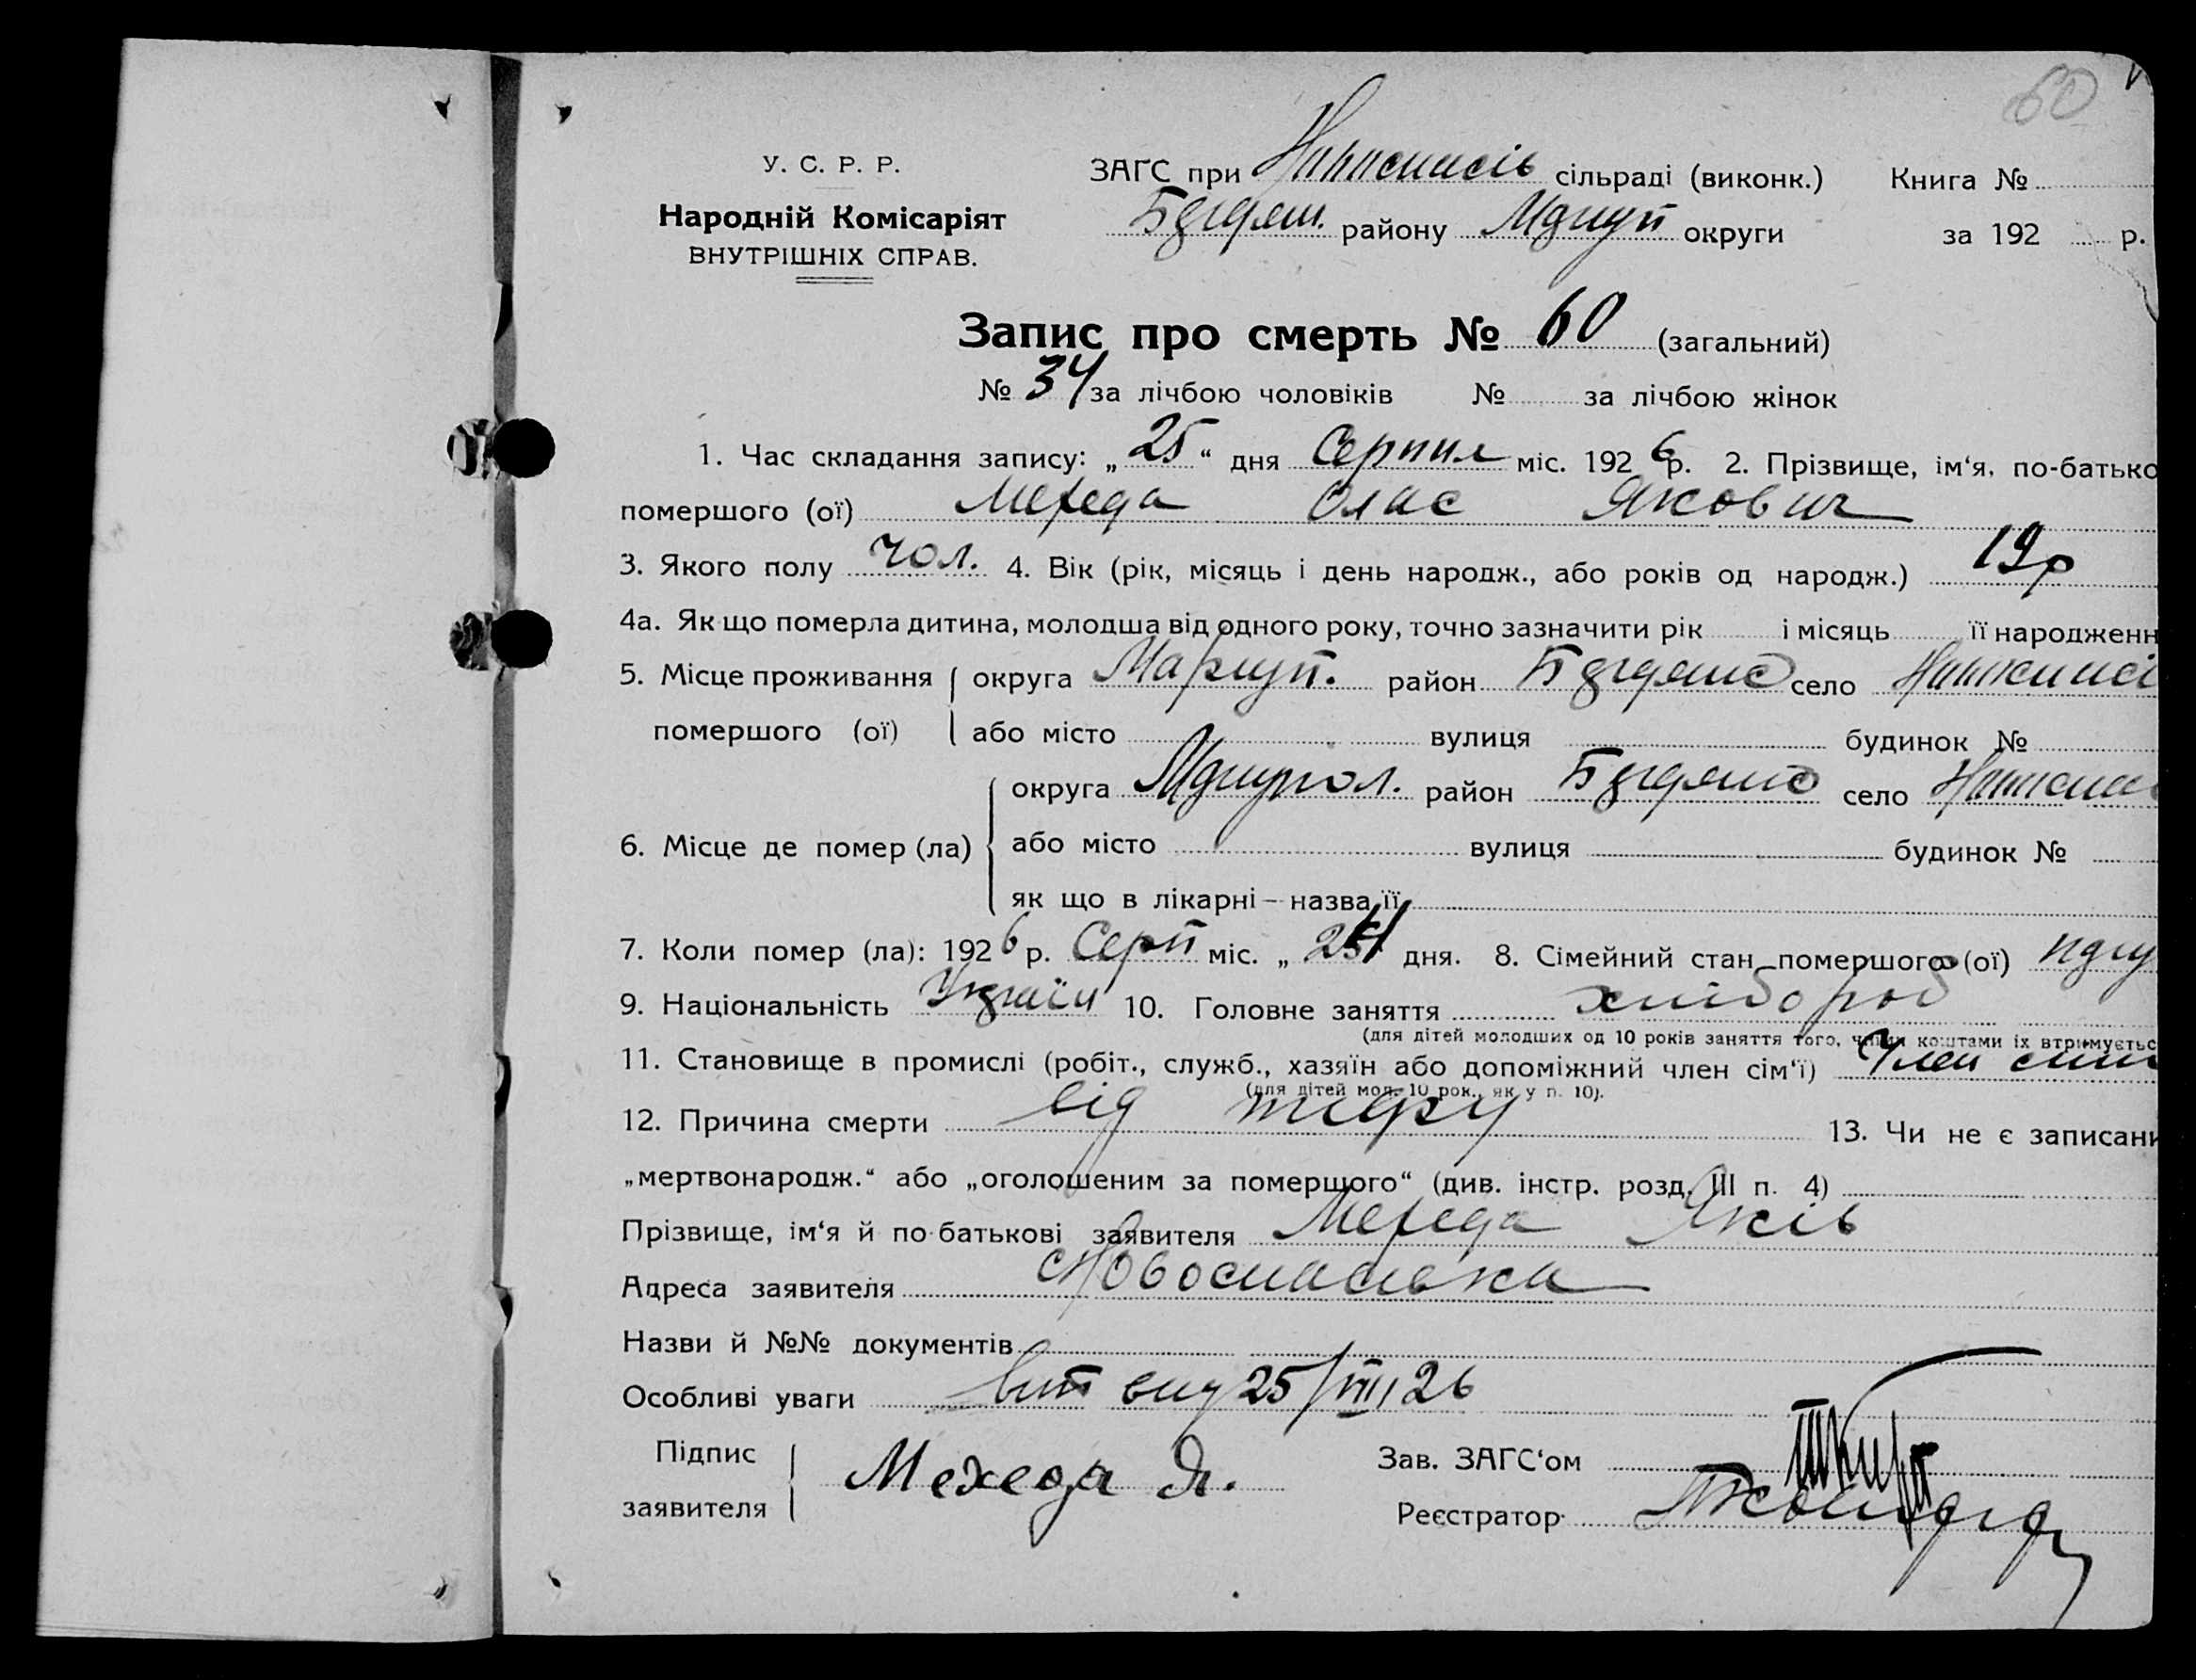 60
У. С. Р. Р.
ЗАГС при сільраді (виконк.) Книга №
Народній Комісаріят
району округи за 192 р.
ВНУТРІШНІХ СПРАВ.
Запис про смерть № 60 (загальний)
№ 34 за лічбою чоловіків № за лічбою жінок
1. Час складання запису: „25“ дня Серпня міс. 1926 р. 2. Прізвище, ім‘я, по-батько
помершого (ої) Мехеда Олис Якович
3. Якого полу чол. 4. Вік (рік, місяць і день народж., або років од народж.) 19 р
4а. Як що померла дитина, молодша від одного року, точно зазначити рік і місяць її народженн
5. Місце проживання округа Маріуп. район село
помершого (ої) або місто вулиця будинок №
округа район село
6. Місце де помер (ла) або місто вулиця будинок №
як що в лікарні – назва її
7. Коли помер (ла): 1926 р. Серп міс. „ дня. 8. Сімейний стан помершого (ої)
9. Національність Україн 10. Головне заняття хлібороб
(для дітей молодших од 10 років заняття того, чиїми коштами їх втримуєтьс
11. Становище в промислі (робіт., служб., хазяїн або допоміжний член сім‘ї) Член сим
(для дітей мол. 10 рок., як у п. 10).
12. Причина смерти від тифу 13. Чи не є записани
„мертвонародж.“ або „оголошеним за помершого“ (див. інстр. розд. III п. 4)
Прізвище, ім‘я й по-батькові заявителя Мехеда Яків
Адреса заявителя Новоспасівка
Назви й №№ документів
Особливі уваги 25/VIII 26
Підпис заявителя Мехеда Я.
Зав. ЗАГС‘ом
Реєстратор